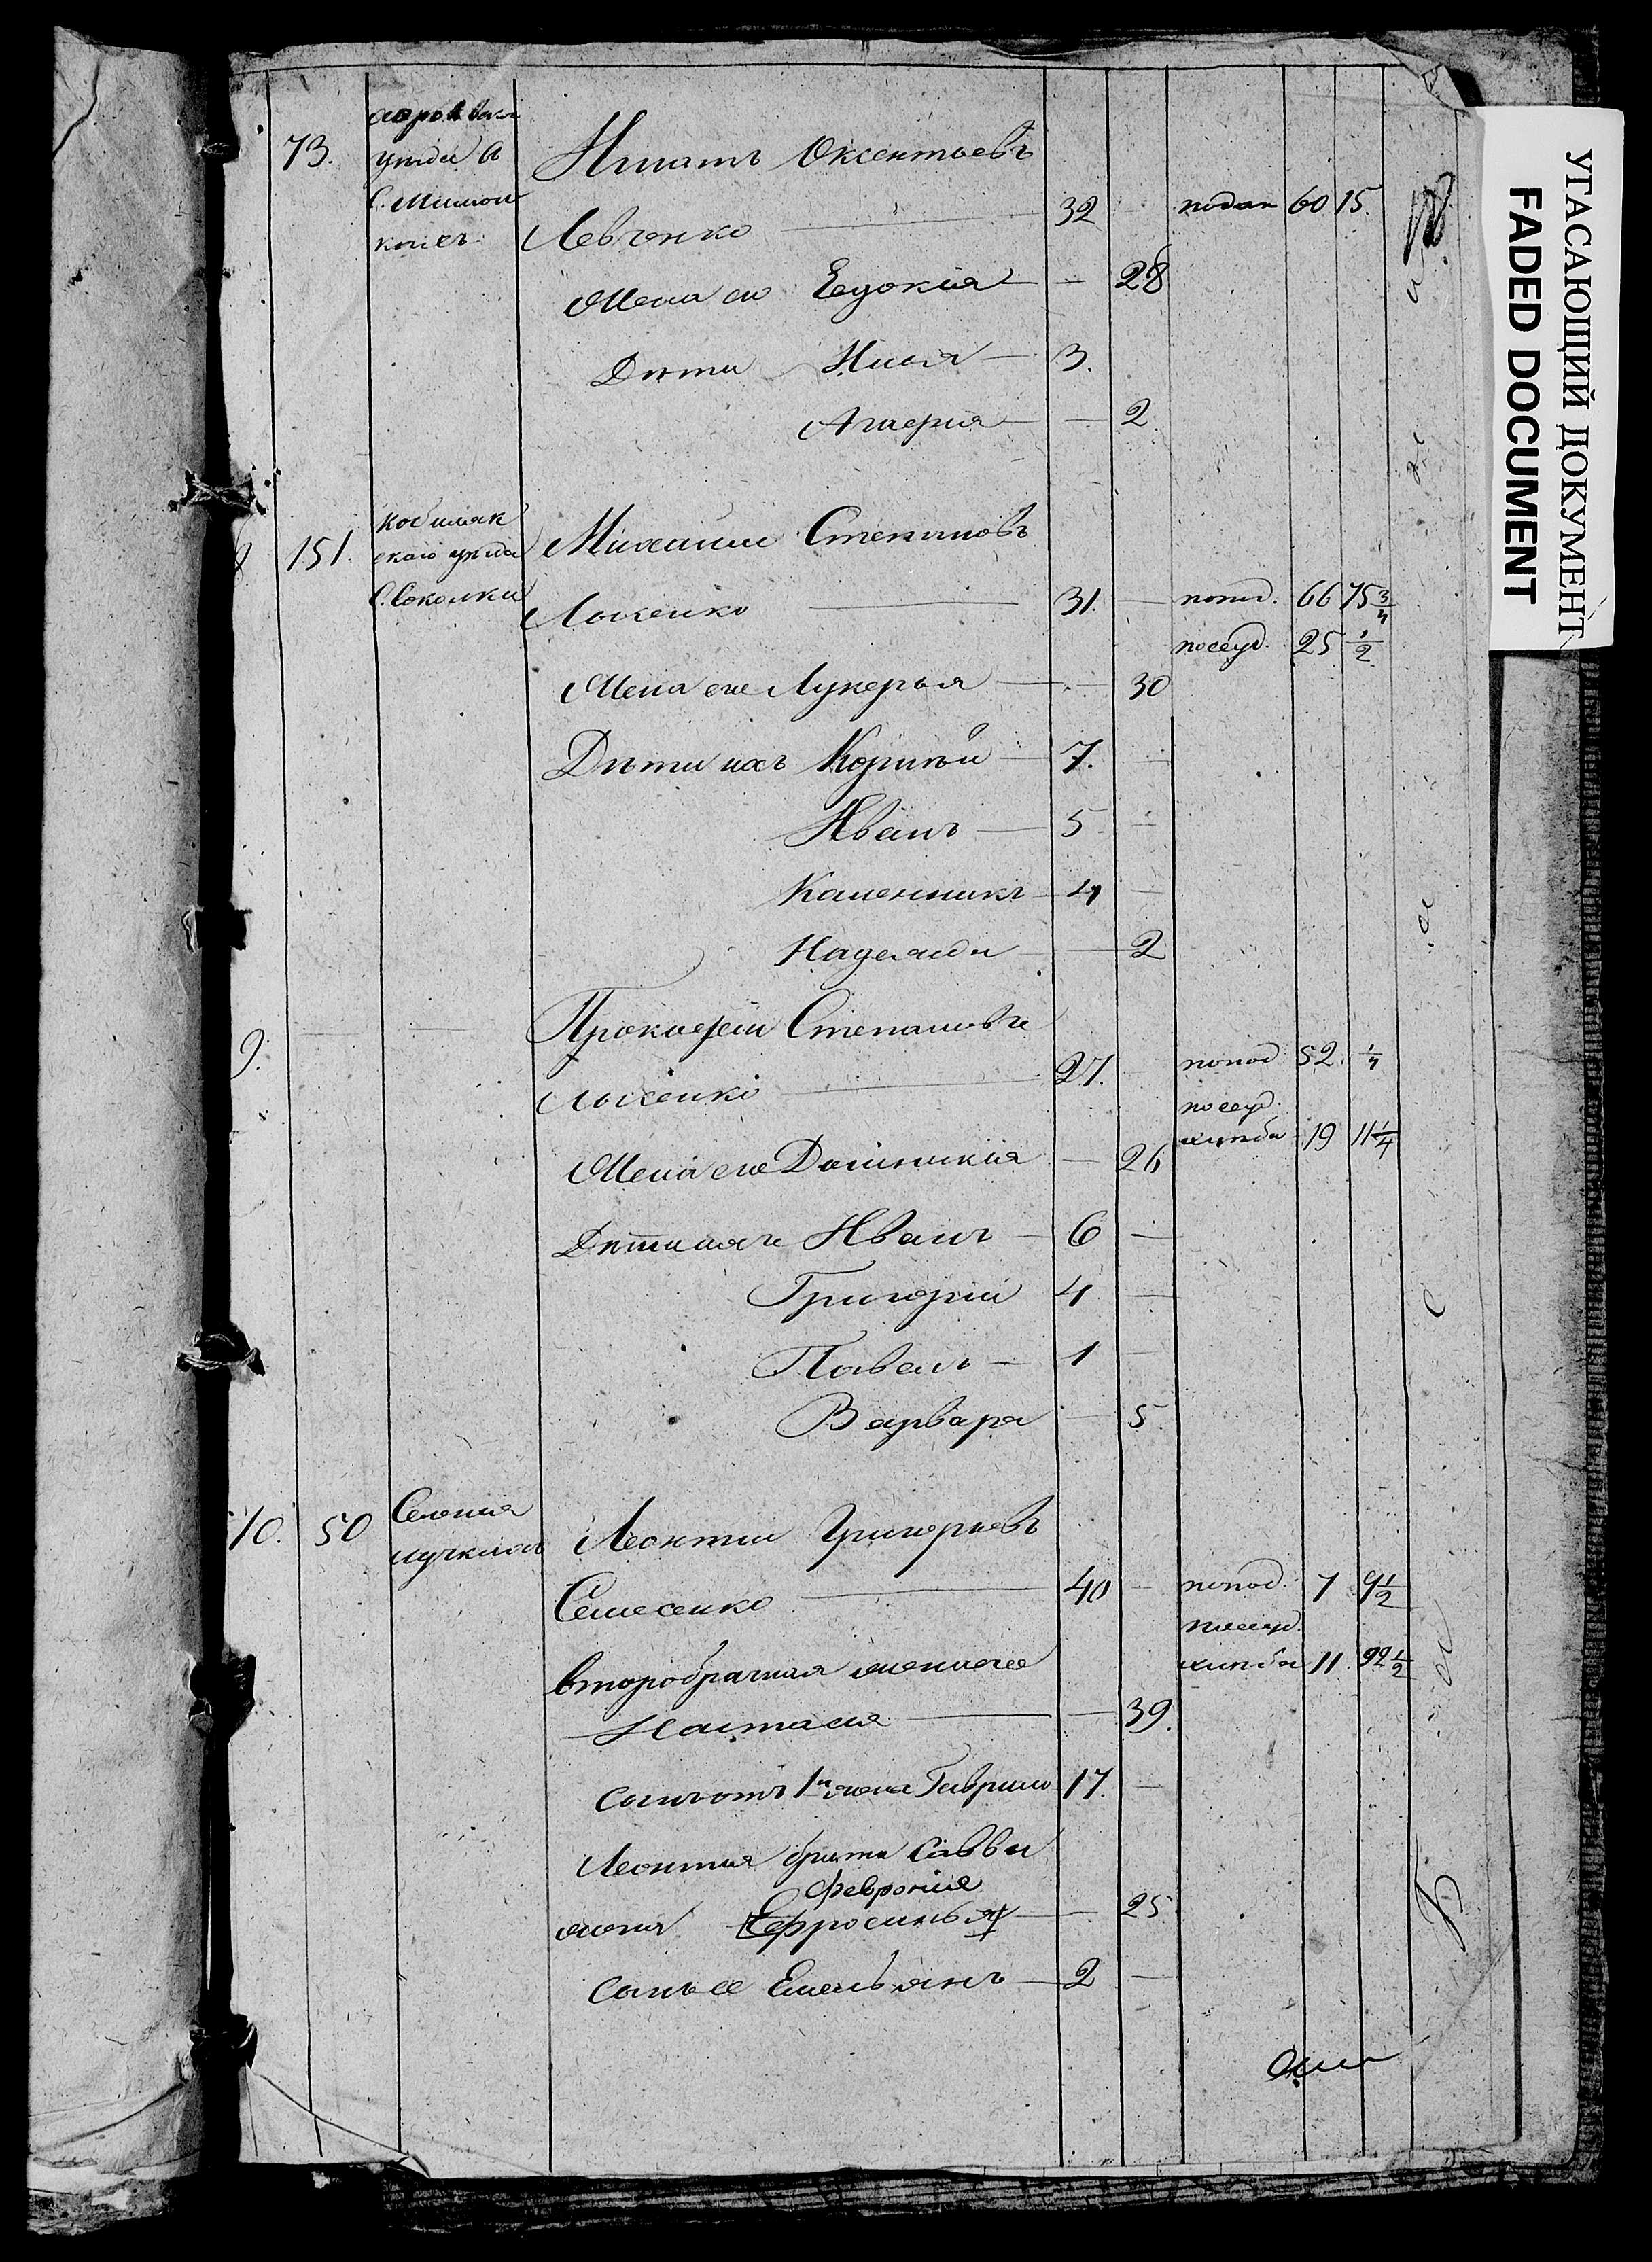 73. уезда
Игнатъ Оксентьевъ
Левченко 32 — подат 60 15.
Жена ею Евдокия — 28
Дети Илья — 3.
— 2
151. Кобиляк
скаго уезда Михаила Степановъ
С. Соколки
Лысенко 31. — попод. 66 75 3/4
поссуд. 25 1/2
Жена ею Лукерья — 30
Дети ихъ Корнѣй — 7. —
Иванъ — 5 —
Каленникъ — 4 —
Надежда — 2
9. — — Прокофей Степановъ
Лысенко 27. — попод 52. 1/4
поссуд.
хлѣба 19 11 1/4
Жена ею Домникия — 26
Дети ихъ Иванъ — 6 —
Григорий 4 —
Павелъ — 1 —
Варвара — 5.
10. 50 Селения
Леонтий Григорьевъ
Семесенко 40 — попод. 7 9 1/2
поссуд.
хлѣба 11. 92 1/2
второбрачная жена ею
Настасия — 39.
сынъ отъ 1й жены Гаврило 17. —
Леонтия брата Саввы
Феврония
жена Ефросинья — 25
сынъ ее Емельянъ — 2 —
УГАСАЮЩИЙ ДОКУМЕНТ
FADED DOCUMENT